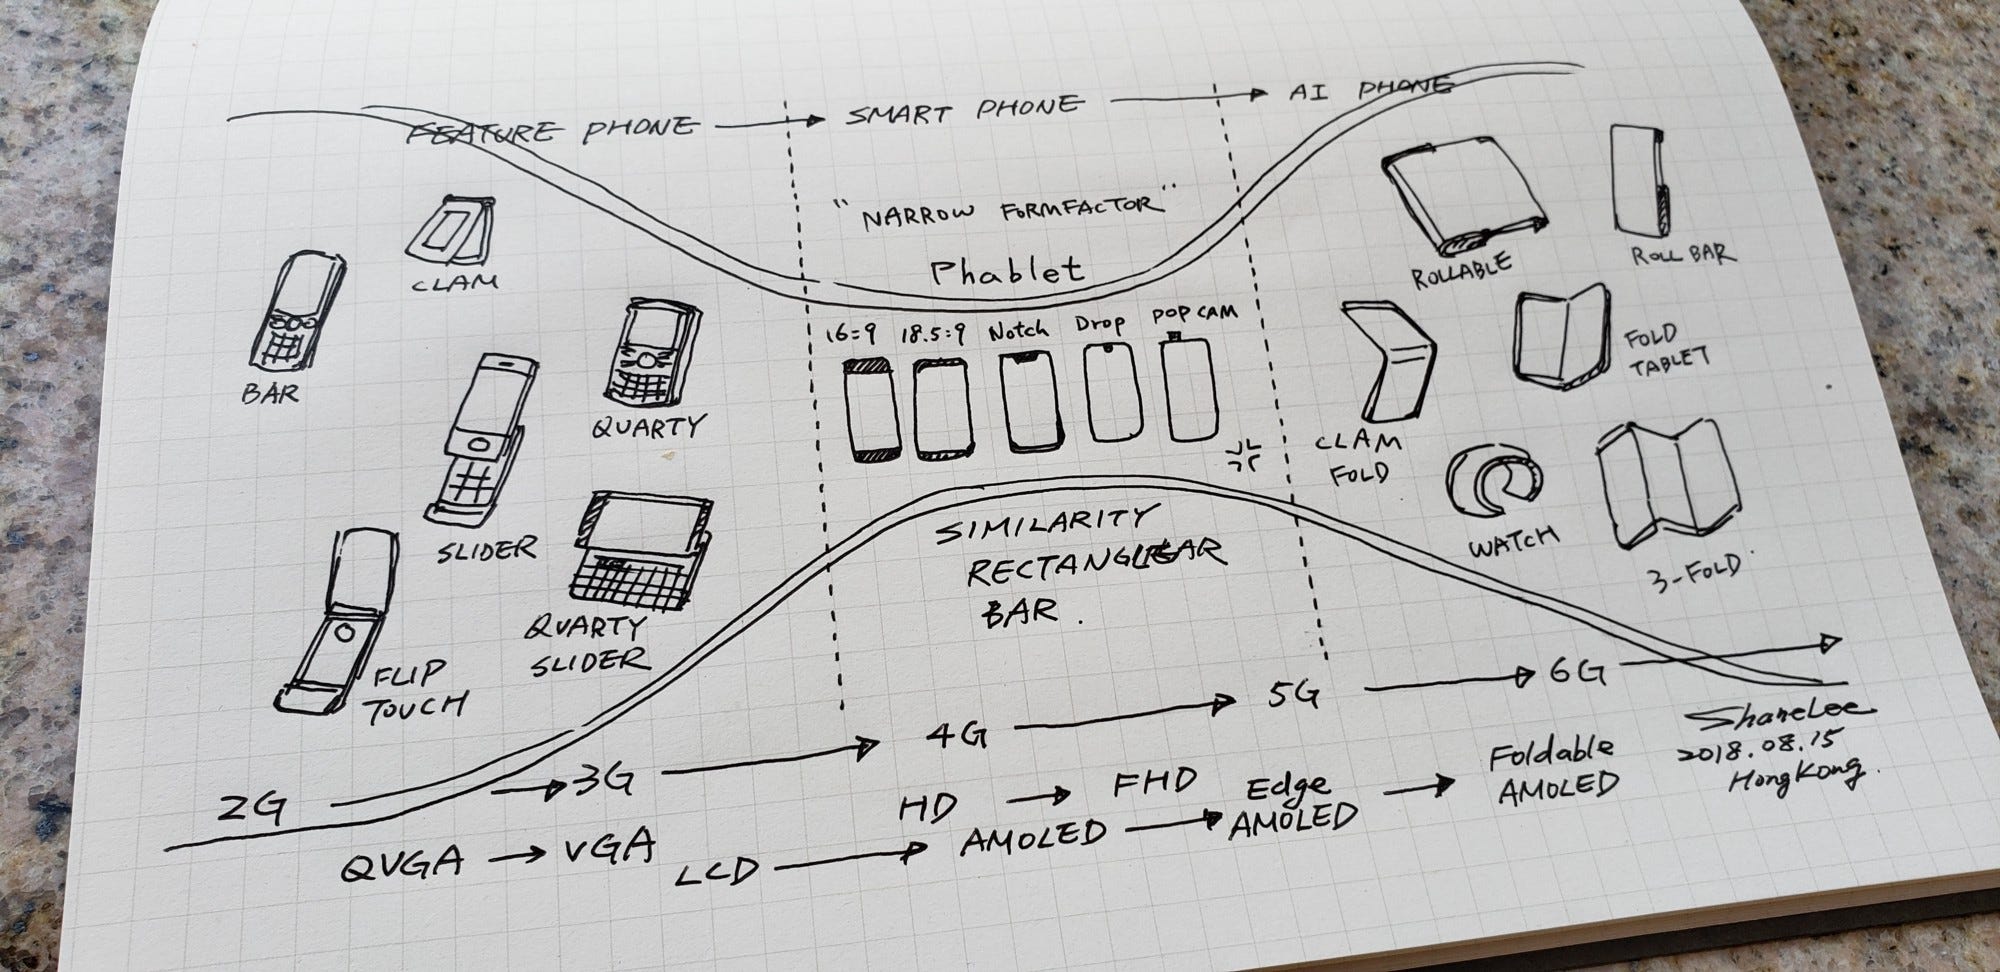 FEATURE PHONE → SMART PHONE → AI PHONE
"NARROW FORMFACTOR"
Phablet
CLAM
BAR
QUARTY
SLIDER
QUARTY
SLIDER
FLIP
TOUCH
16:9 18.5:9 Notch Drop POP CAM
SIMILARITY
RECTANGULAR
BAR.
ROLLABLE
ROLL BAR
CLAM
FOLD
FOLD
TABLET
WATCH
3-FOLD
2G → 3G → 4G → 5G → 6G →
QVGA → VGA
HD → FHD
LCD → AMOLED → Edge
AMOLED → Foldable
AMOLED
ShaneLee
2018.08.15
HongKong.